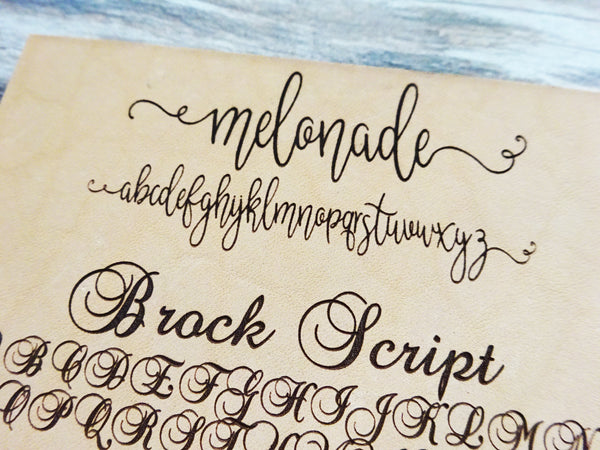 melonade
abcdefghyklmnopqrstuvwxyz
Brock Script
B C D E F G H I J K L M N
O P Q R S T